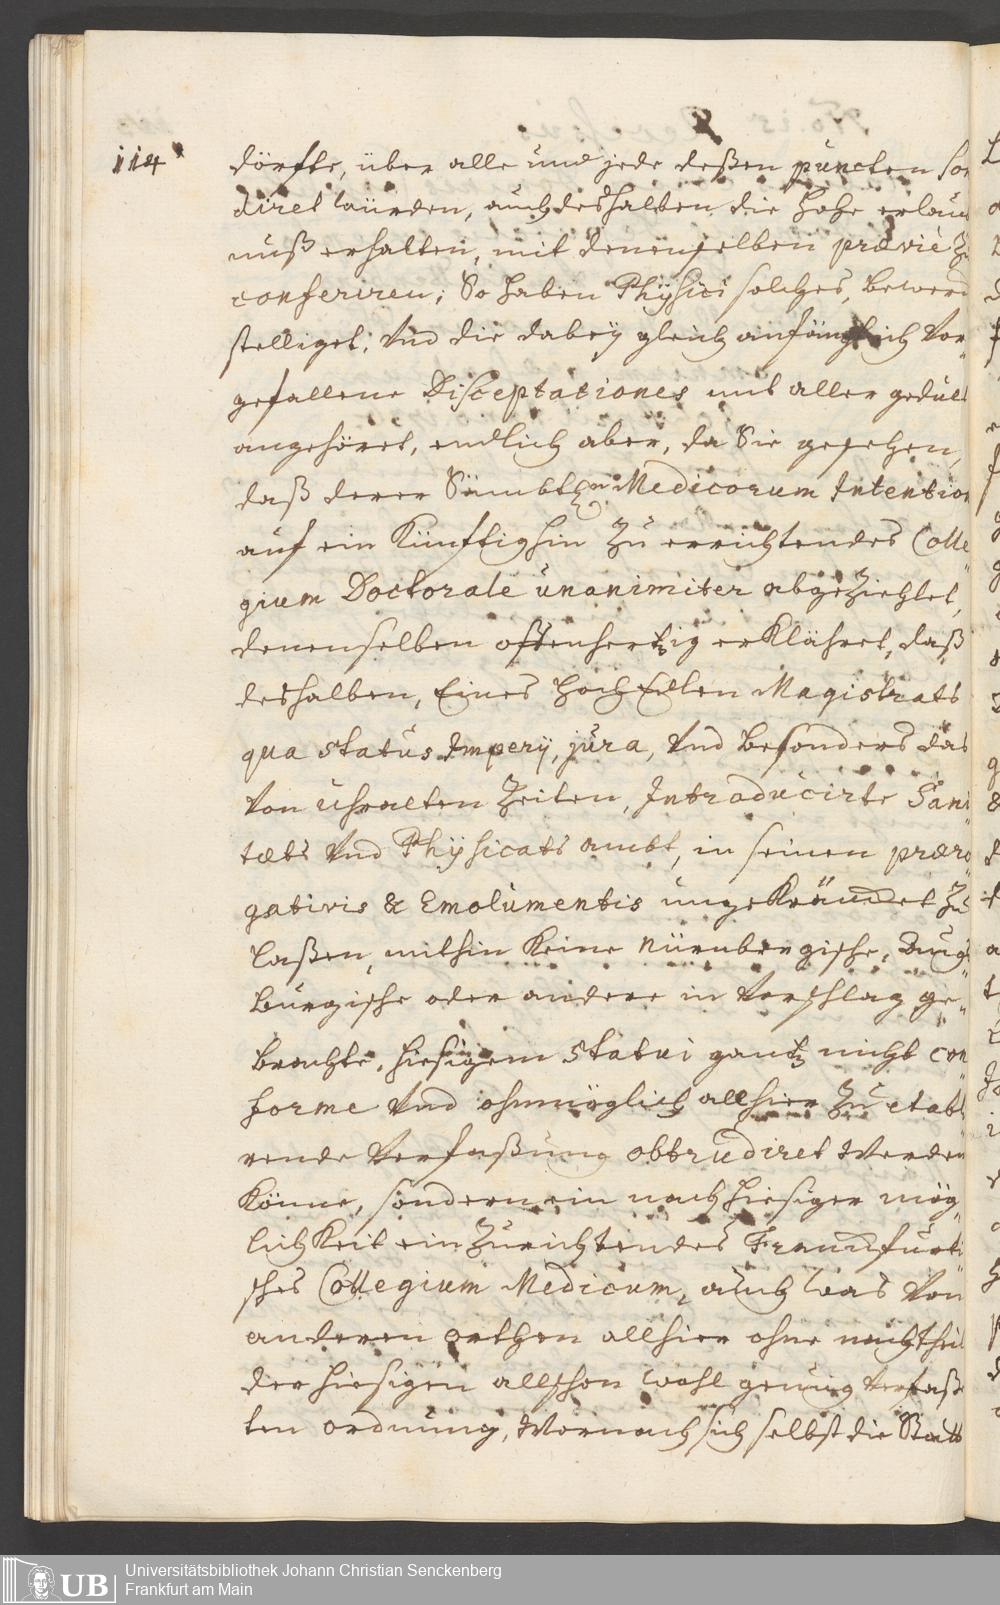 114
dörfte, über alle und jede deßen puncten son
diret würden, auch deshalben die hohe erlaub
nuß erhalten, mit denenselben præviè zu
conferiren; So haben Physici solches, bewerck
stelliget, Und die dabeÿ gleich anfänglich Vor-
gefallene Disceptationes mit aller gedult
angehöret, endlich aber, da Sie gesehen,
daß derer Sämbtlen Medicorum Intention
auf ein Künfftighin zu errichtendes Colle
gium Doctorale unanimiter abgeziehlet,
denenselben offenhertzig erklähret, daß
deshalben, Eines Hoch Edlen Magistrats
qua status Imperÿ, jura, Und besonders das
Von uhralten Zeiten, Introducirte Sani
tæts Und Physicats ambt, in seinen præro
gativis & Emolumentis ungekränket zu
laßen, mithin keine Nürnbergische, Augs
burgische oder andere in Vorschlag ge-
brachte, hiesigem statui gantz nicht con
forme Und ohnmöglich allhier zu etabli
rende Verfaßung obtrudiret Werden
könne, sondern ein nach hiesiger mög-
lichkeit einzurichtendes Franckfurti
sches Collegium Medicum, auch was Von
anderen orthen allhier ohne nachtheil
der hiesigen allschon wohl genung verfaß
ten ordnung, Wornach sich selbst die Statt
Universitätsbibliothek Johann Christian Senckenberg
Frankfurt am Main
UB